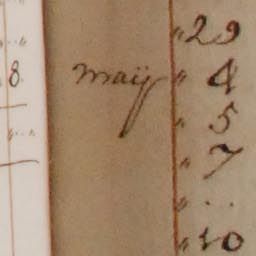 " 29
8. maij " 4
" 5
" 7
" ..
" 10